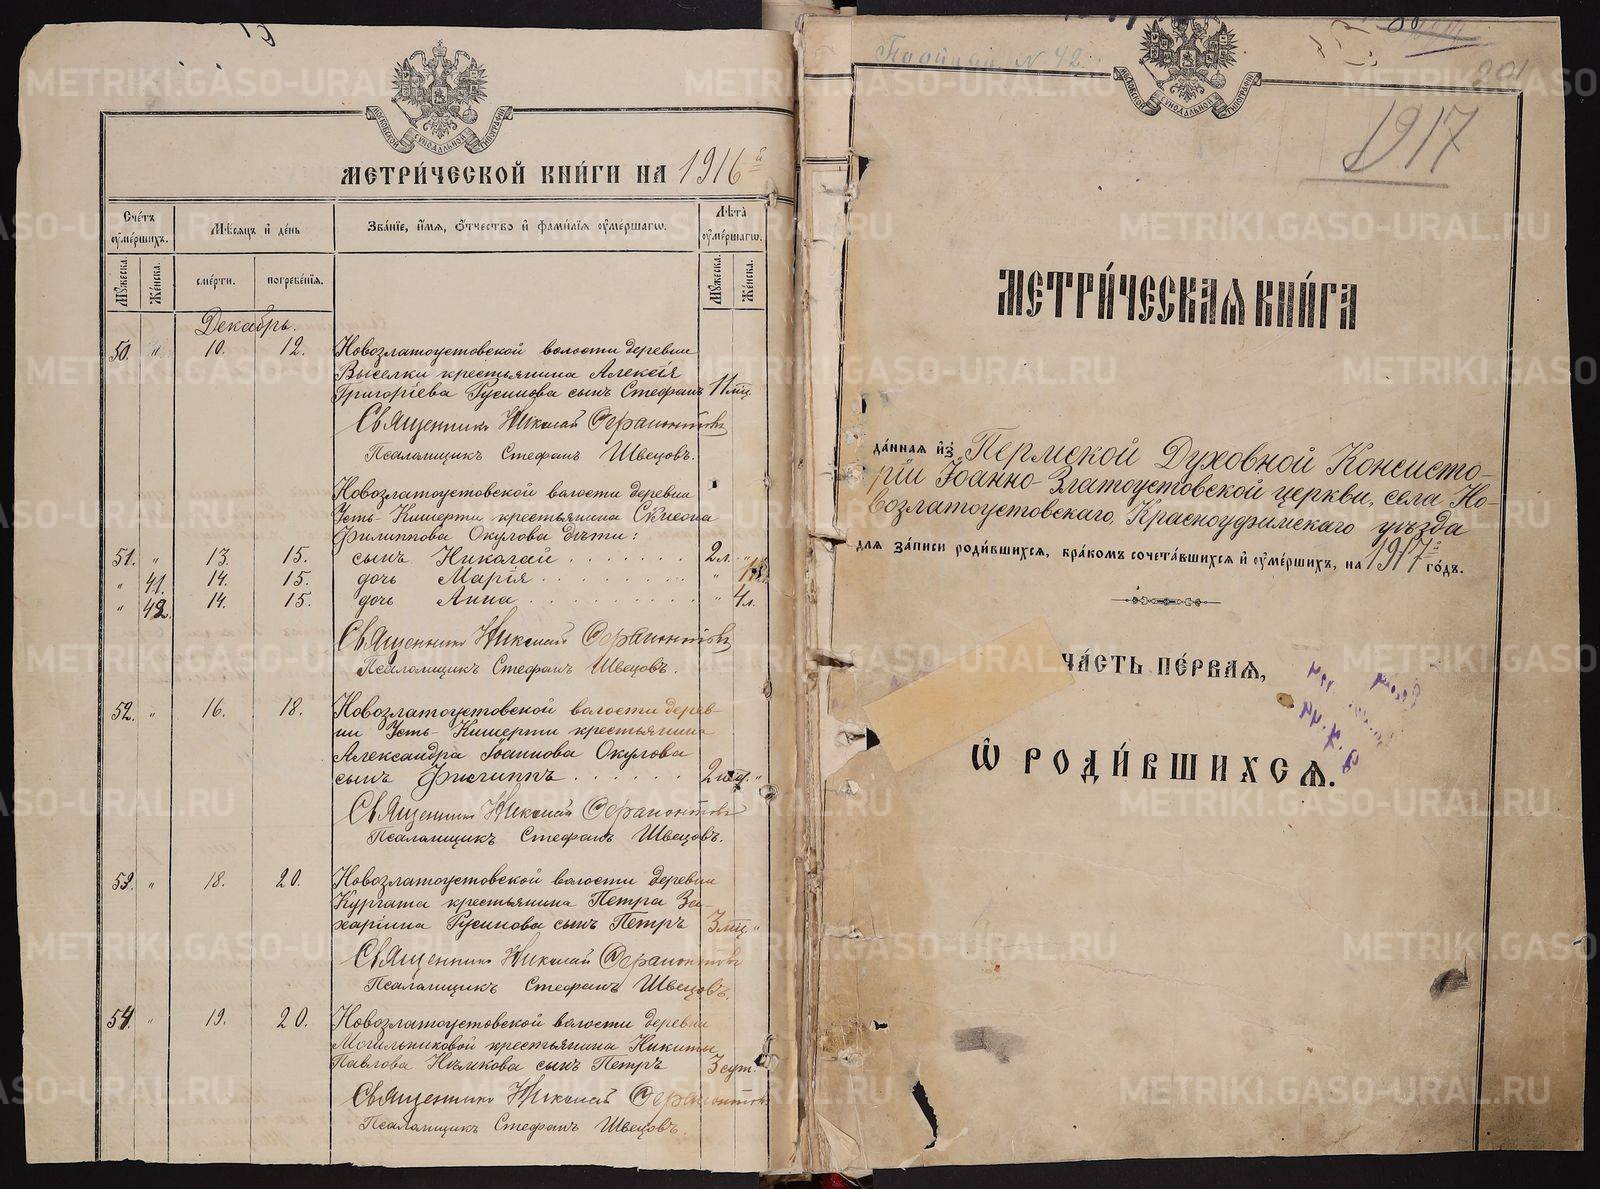 МОСКОВСКОЙ СѴНОДАЛЬНОЙ ТИПОГРАФІИ
МЕТРИ́ЧЕСКОЙ КНИ́ГИ НА 1916 й
Сче́тъ ᲂу҆ме́ршихъ.
Мѣ́сяцъ и҆ де́нь
Зва́нїе, и҆́мя, ѻ҆́тчество и҆ фамі́лїя ᲂу҆ме́ршагѡ.
Лѣта̀ ᲂу҆ме́ршагѡ.
Мꙋ́жеска.
Же́нска.
сме́рти.
погребе́нїя.
Мꙋ́жеска.
Же́нска.
Декабрь.
50. " 10. 12. Новозлатоустовской волости деревни
Выселки крестьянина Алексія
Григоріева Русинова сынъ Стефанъ 11 мц.
Священникъ Николай Серапіонтовъ
Псаломщикъ Стефанъ Швецовъ.
Новозлатоустовской волости деревни
Усть-Кишерти крестьянина Сѵмеона
Филиппова Окулова дѣти:
51. " 13. 15. сынъ Николай . . . . . . . 2 л. "
" 41. 14. 15. дочь Марія . . . . . . . . "
" 42. 14. 15. дочь Анна . . . . . . . . . " 4 л.
Священникъ Николай Серапіонтовъ
Псаломщикъ Стефанъ Швецовъ.
52. " 16. 18. Новозлатоустовской волости дерев-
ни Усть-Кишерти крестьянина
Александра Іоаннова Окулова
сынъ Филиппъ . . . . . . 2 "
Священникъ Николай Серапіонтовъ
Псаломщикъ Стефанъ Швецовъ.
53. " 18. 20. Новозлатоустовской волости деревни
Кургата крестьянина Петра За-
харіина Русинова сынъ Петръ 3 мц. "
Священникъ Николай Серапіонтовъ
Псаломщикъ Стефанъ Швецовъ.
54. " 19. 20. Новозлатоустовской волости деревни
Могильниковой крестьянина Никиты
Павлова сынъ Петръ 3 сут.
Священникъ Николай Серапіонтовъ
Псаломщикъ Стефанъ Швецовъ.
N 42
201
МОСКОВСКОЙ СѴНОДАЛЬНОЙ ТИПОГРАФІИ
1917
МЕТРИ́ЧЕСКАѦ КНИ́ГА
да́нная и҆з̾ Пермской Духовной Консисто-
ріи Іоанно-Златоустовской церкви, села Но-
возлатоустовскаго, Красноуфимскаго уѣзда
для за́писи роди́вшихся, бра́комъ сочета́вшихся и҆ ᲂу҆ме́ршихъ, на 1917 й го́дъ.
ЧА́СТЬ ПЕ́РВАѦ,
Ѡ҆ РОДИ́ВШИХСѦ.
METRIKI.GASO-URAL.RU